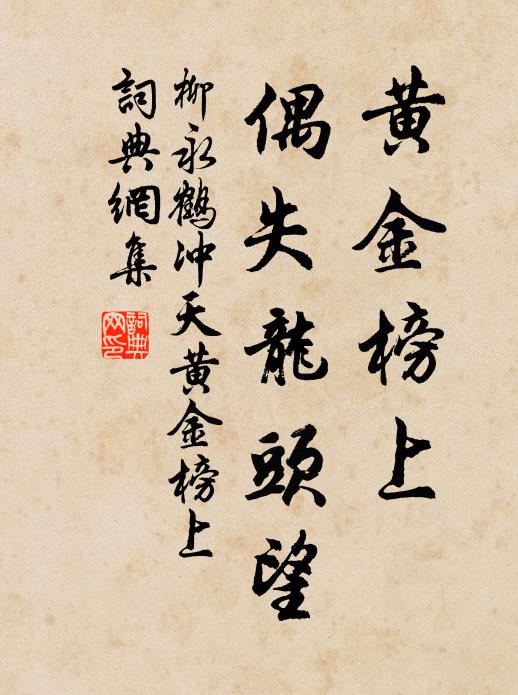 黄金榜上
偶失龍頭望
柳永鶴冲天黄金榜上
詞典網集
詞典網印